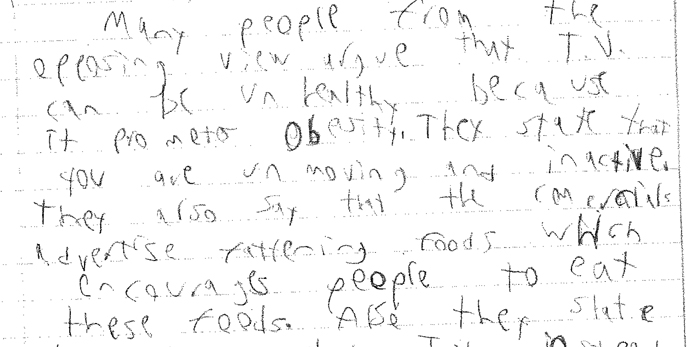 Many people from the
opposing view argue that T.V.
can be un healthy because
it promotes Obesity. They state that
you are un moving and inactive.
They also say that the comercials
Advertise fattening foods which
encourages people to eat
these foods. Also they state